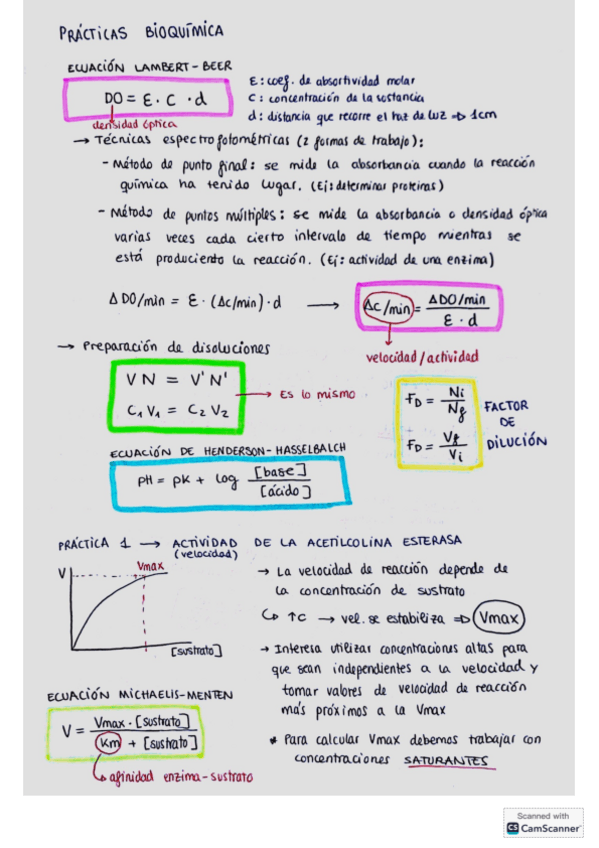 PRÁCTICAS BIOQUÍMICA
ECUACIÓN LAMBERT-BEER
DO = ε · C · d
densidad óptica
ε: coef. de absortividad molar
C: concentración de la sustancia
d: distancia que recorre el haz de luz => 1cm
→ Técnicas espectrofotométricas (2 formas de trabajo):
- Método de punto final: se mide la absorbancia cuando la reacción
química ha tenido lugar. (Ej: determinar proteínas)
- Método de puntos múltiples: se mide la absorbancia o densidad óptica
varias veces cada cierto intervalo de tiempo mientras se
está produciento la reacción. (Ej: actividad de una enzima)
Δ DO/min = ε · (Δc/min) · d → Δc/min = ΔDO/min / ε · d
velocidad / actividad
→ Preparación de disoluciones
V N = V' N'
C₁ V₁ = C₂ V₂
→ Es lo mismo
F_D = Ni / Nf
F_D = Vf / Vi
FACTOR
DE
DILUCIÓN
ECUACIÓN DE HENDERSON-HASSELBALCH
pH = pK + log [base] / [ácido]
PRÁCTICA 1 → ACTIVIDAD DE LA ACETILCOLINA ESTERASA
(velocidad)
V
Vmax
[sustrato]
→ La velocidad de reacción depende de
la concentración de sustrato
↳ ↑c → vel. se estabiliza => Vmax
→ Interesa utilizar concentraciones altas para
que sean independientes a la velocidad y
tomar valores de velocidad de reacción
más próximos a la Vmax
* Para calcular Vmax debemos trabajar con
concentraciones SATURANTES
ECUACIÓN MICHAELIS-MENTEN
V = Vmax · [sustrato] / Km + [sustrato]
↳ afinidad enzima-sustrato
Scanned with
CS CamScanner